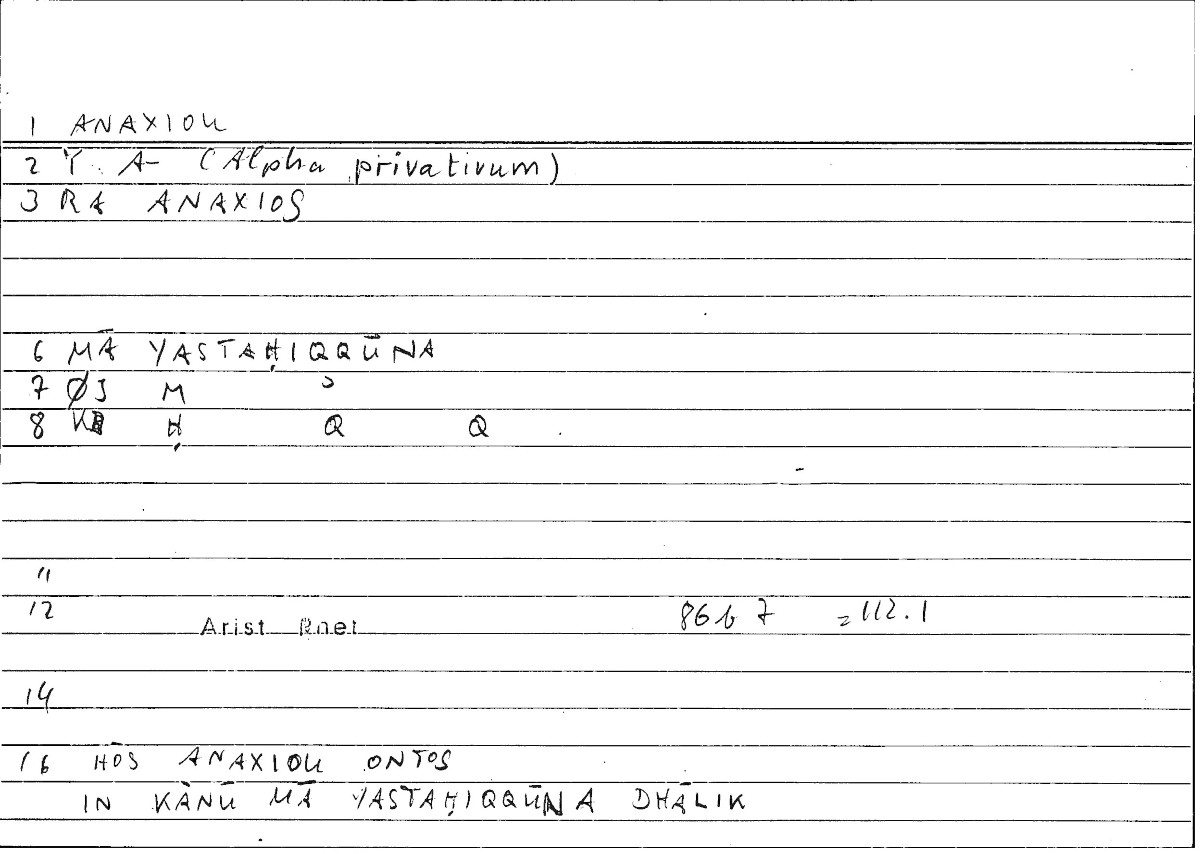 1 ANAXIOU
2 Y. A- (Alpha privativum)
3 RA ANAXIOS
6 MĀ YASTAḤIQQŪNA
7 ØJ M
8 Ḥ Q Q
11
12 Arist Rhet 86b7 =112.1
14
16 HŌS ANAXIOU ONTOS
IN KĀNŪ MĀ YASTAḤIQQŪNA DHĀLIK